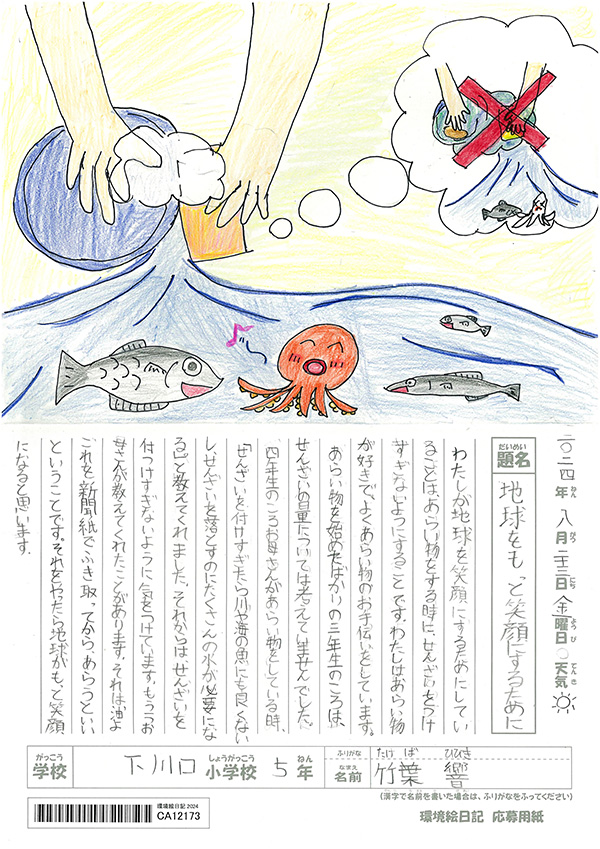 二〇二四年八月二十三日金曜日〇天気
ねん
がつ
にち
ようび
てんき
だいめい
題名
地球をもっと笑顔にするために
わたしが地球を笑顔にするためにしてい
ることは、あらい物をする時に、せんざいをつけ
すぎないようにすることです。わたしはあらい物
が好きで、よくあらい物のお手伝いをしています。
あらい物を始めたばかりの三年生のころは、
せんざいの量については考えていませんでした。
四年生のころお母さんがあらい物をしている時、
「せんざいを付けすぎたら川や海の魚にも良くない
しせんざいを落とすのにたくさんの水が必要にな
る」と教えてくれました。それからはせんざいを
付つけすぎないように気をつけています。もう一つお
母さんが教えてくれたことがあります。それは油よ
ごれを新聞紙でふき取ってから、あらうとい
ということです。それをやったら地球がもっと笑顔
になると思います。
がっこう
学校
下川口
しょうがっこう
小学校
5
ねん
年
ふりがな
たけば ひびき
なまえ
名前
竹葉 響
(漢字で名前を書いた場合は、ふりがなをふってください)
環境絵日記 2024
CA12173
環境絵日記 応募用紙